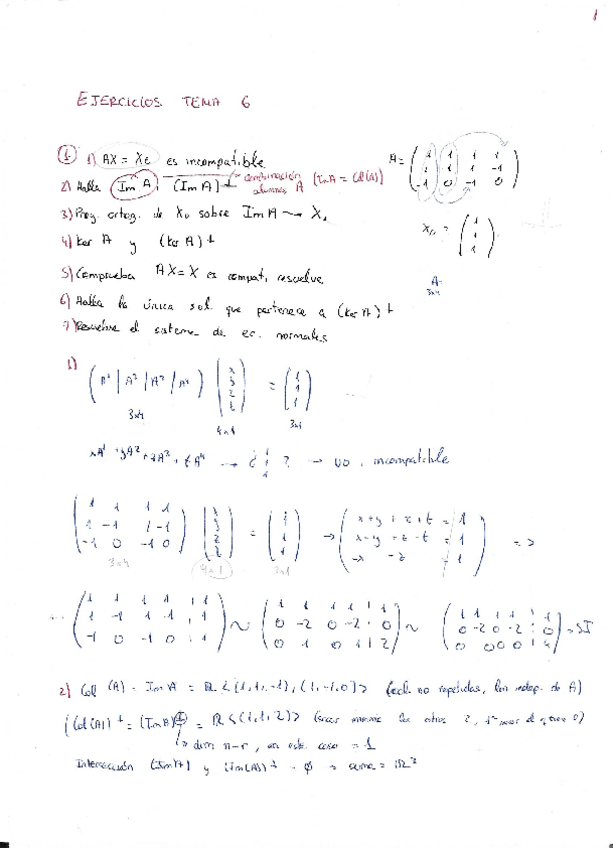 1
EJERCICIOS TEMA 6
① 1) AX = X₀ es incompatible
2) Halla Im A, (Im A)⊥ combinación columnas A (ImA = Col(A))
3) Proy. ortog. de X₀ sobre Im A → X₁
4) Ker A y (Ker A)⊥
5) Comprueba AX = X es compat, resuelve
6) Halla la única sol que pertenece a (Ker A)⊥
7) Resuelve el sistema de ec. normales
A =
1 1 1 1
-1 0 -1 0
X₀ = 1
1
1
A
3x4
1)
(A¹ | A² | A³ | A⁴) (x y z t) = (1 1 1)
3x4 4x1 3x1
xA¹ + yA² + zA³ + tA⁴ → ¿ 1 1 1 ? → NO, incompatible
1 1 1 1 x 1 x+y+z+t = 1
1 -1 1 -1 y = 1 → x-y+z-t = 1 =>
-1 0 -1 0 z t 1 -x -z 1
3x4 4x1 3x1
1 1 1 1 ¦ 1 1 1 1 1 ¦ 1 1 1 1 1 ¦ 1
1 -1 1 -1 ¦ 1 ~ 0 -2 0 -2 ¦ 0 ~ 0 -2 0 -2 ¦ 0 = SI
-1 0 -1 0 ¦ 1 0 1 0 1 ¦ 2 0 0 0 0 ¦ 4
2) Col (A) = Im A = R<(1,1,-1), (1,-1,0)> (col no repetidas, lin indep. de A)
(Col(A))⊥ = (ImA)⊥ = R<(1,1,2)>
dim n-r, en este caso = 1
Intersección (ImA) y (Im(A))⊥ = ∅ → suma = R³